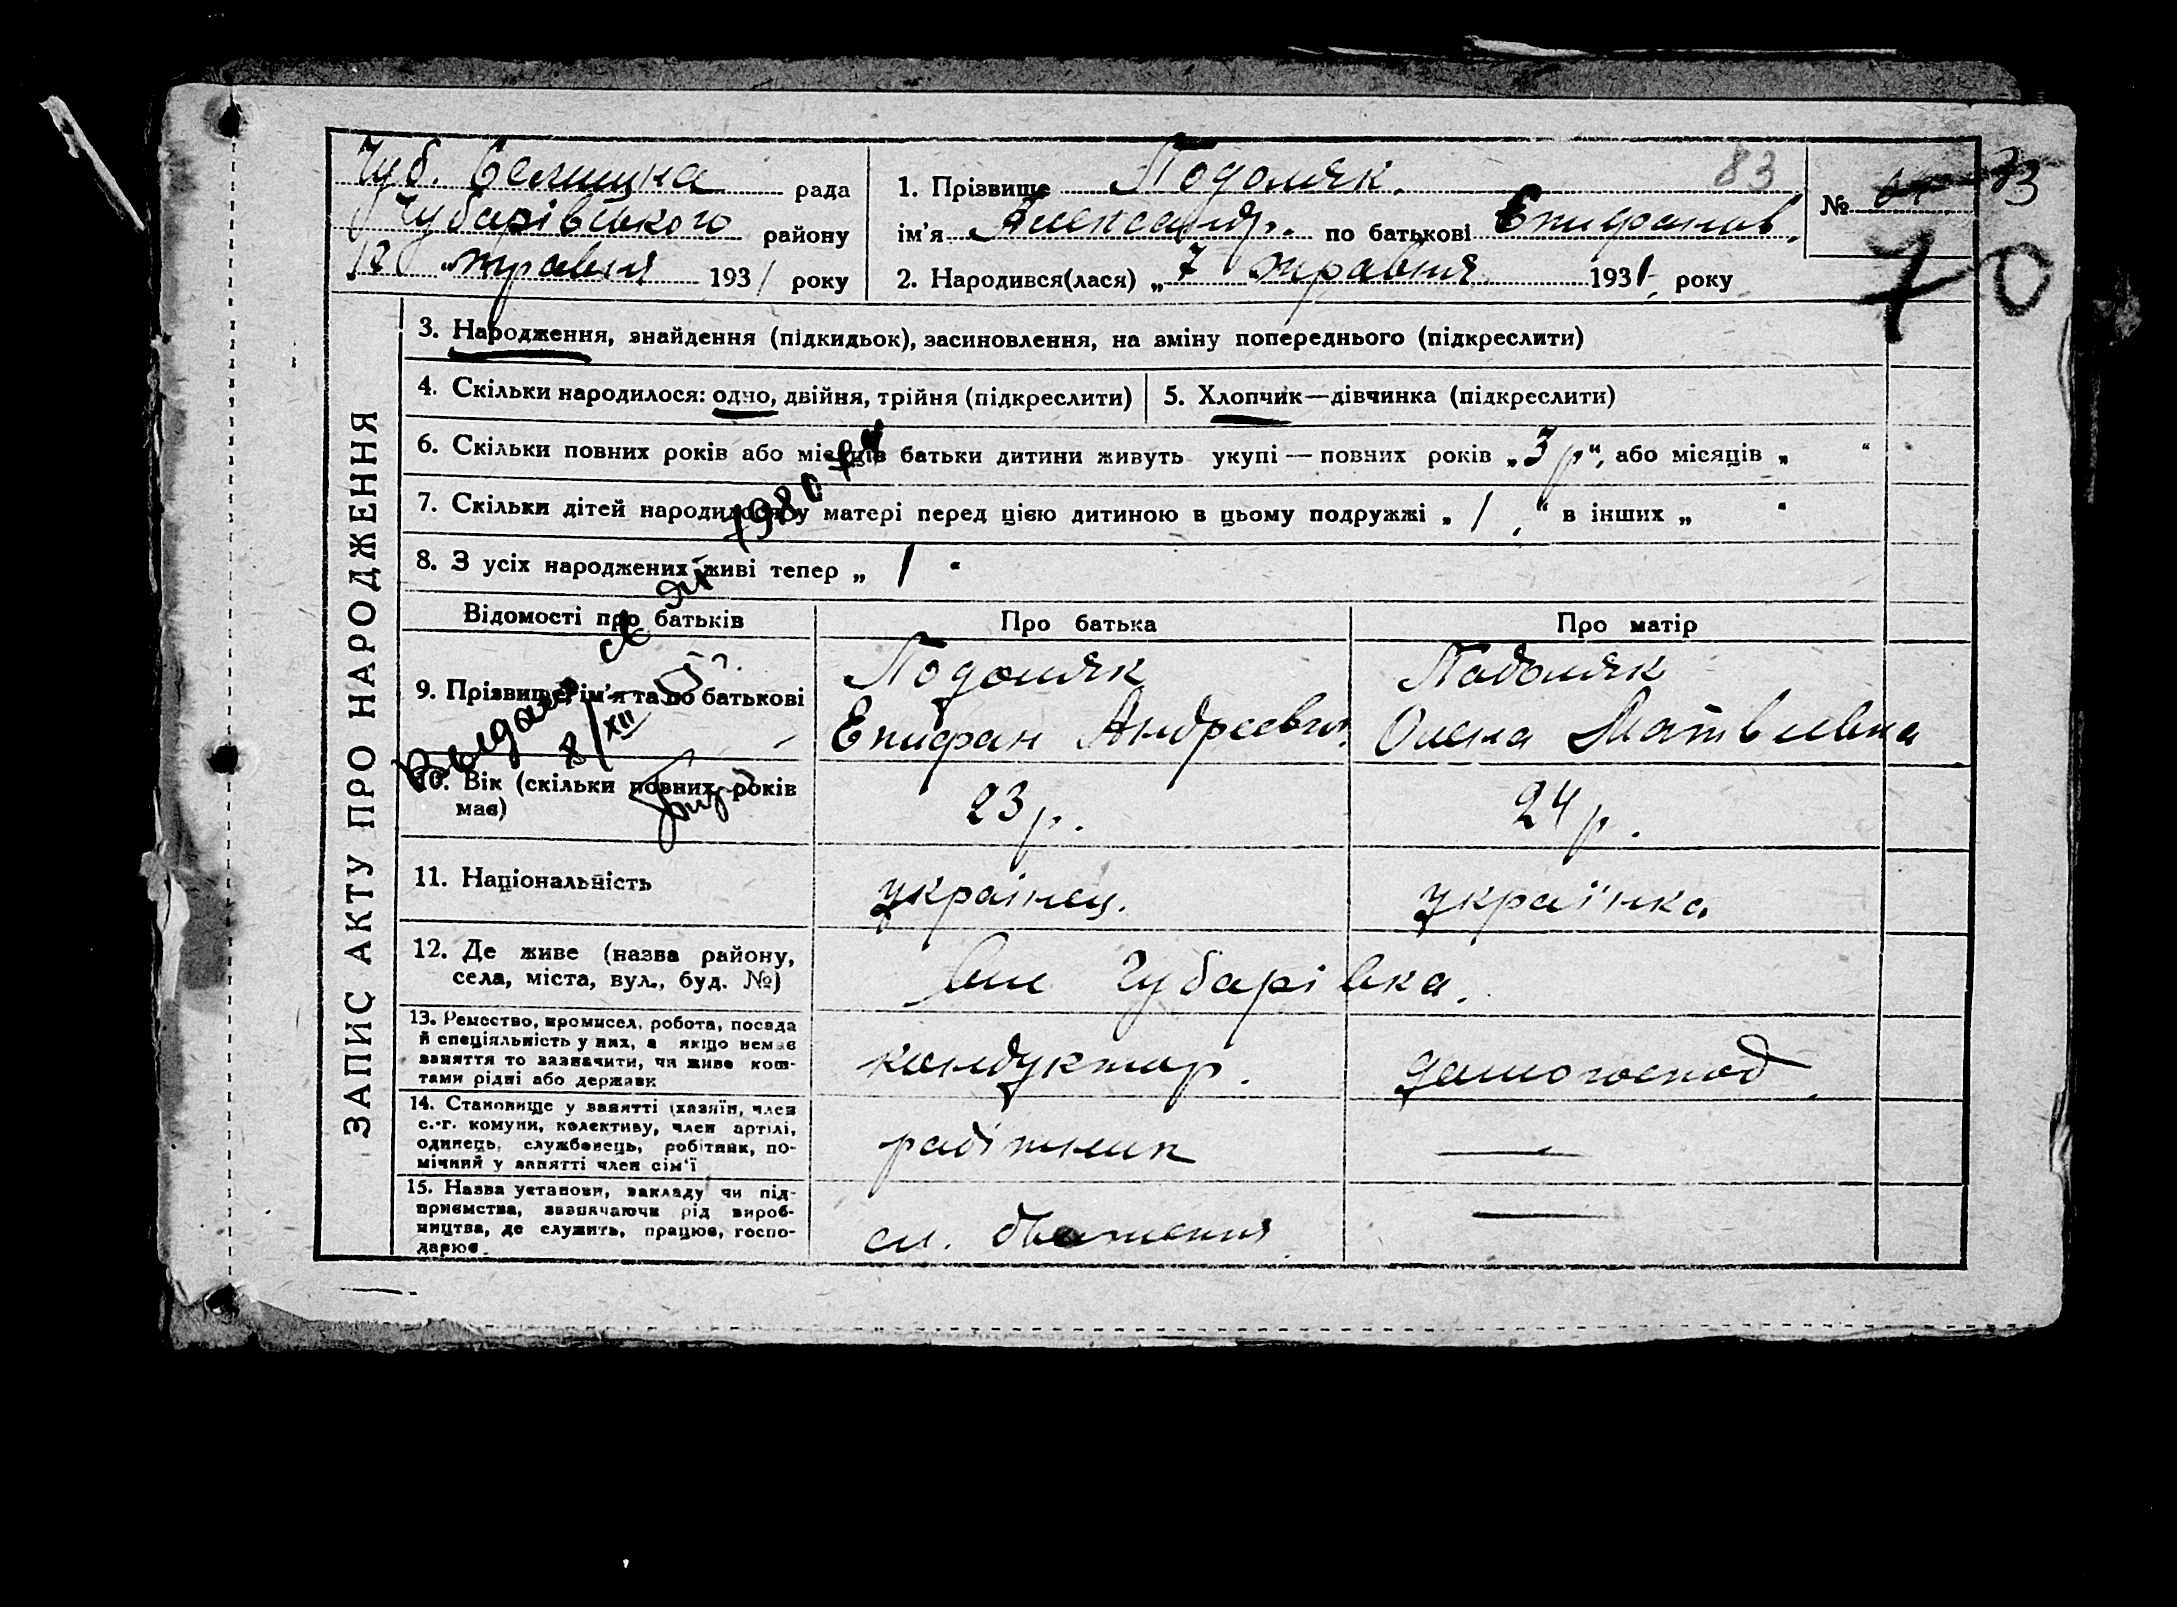 Чуб. Селищна рада
Чубарівського району
12 травня 1931 року
1. Прізвище Подоляк. 83
ім'я Александр. по батькові Епифанов.
2. Народився(лася) „7 травня 1931 року
№ 73
70
ЗАПИС АКТУ ПРО НАРОДЖЕННЯ
3. Народження, знайдення (підкидьок), засиновлення, на зміну попереднього (підкреслити)
4. Скільки народилося: одно, двійня, трійня (підкреслити)
5. Хлопчик—дівчинка (підкреслити)
6. Скільки повних років або місяців батьки дитини живуть укупі — повних років „3 р“, або місяців „ “
7. Скільки дітей народилося у матері перед цією дитиною в цьому подружжі „ 1 “ в інших „ “
8. З усіх народжених живі тепер „ 1 “
Відомості про батьків
Про батька
Про матір
9. Прізвище, ім'я та по батькові
Подоляк
Епифан Андреевич.
Подоляк
Олена Матвіевна
8/XII
10. Вік (скільки повних років
має)
23 р.
24 р.
11. Національність
українец.
українка
12. Де живе (назва району,
села, міста, вул., буд. №)
Чубарівка.
13. Ремество, промисел, робота, посада
й спеціяльність у них, а якщо немає
заняття то зазначити, чи живе кош-
тами рідні або держави
кондуктор.
домогоспод
14. Становище у занятті (хазяїн, член
с.-г. комуни, колективу, член артілі,
одинець, службовець, робітник, по-
мічний у занятті член сім'ї
робітник
—
15. Назва установи, закладу чи під-
приємства, зазначаючи рід вироб-
ництва, де служить, працює, госпо-
дарює.
сл. движения
—